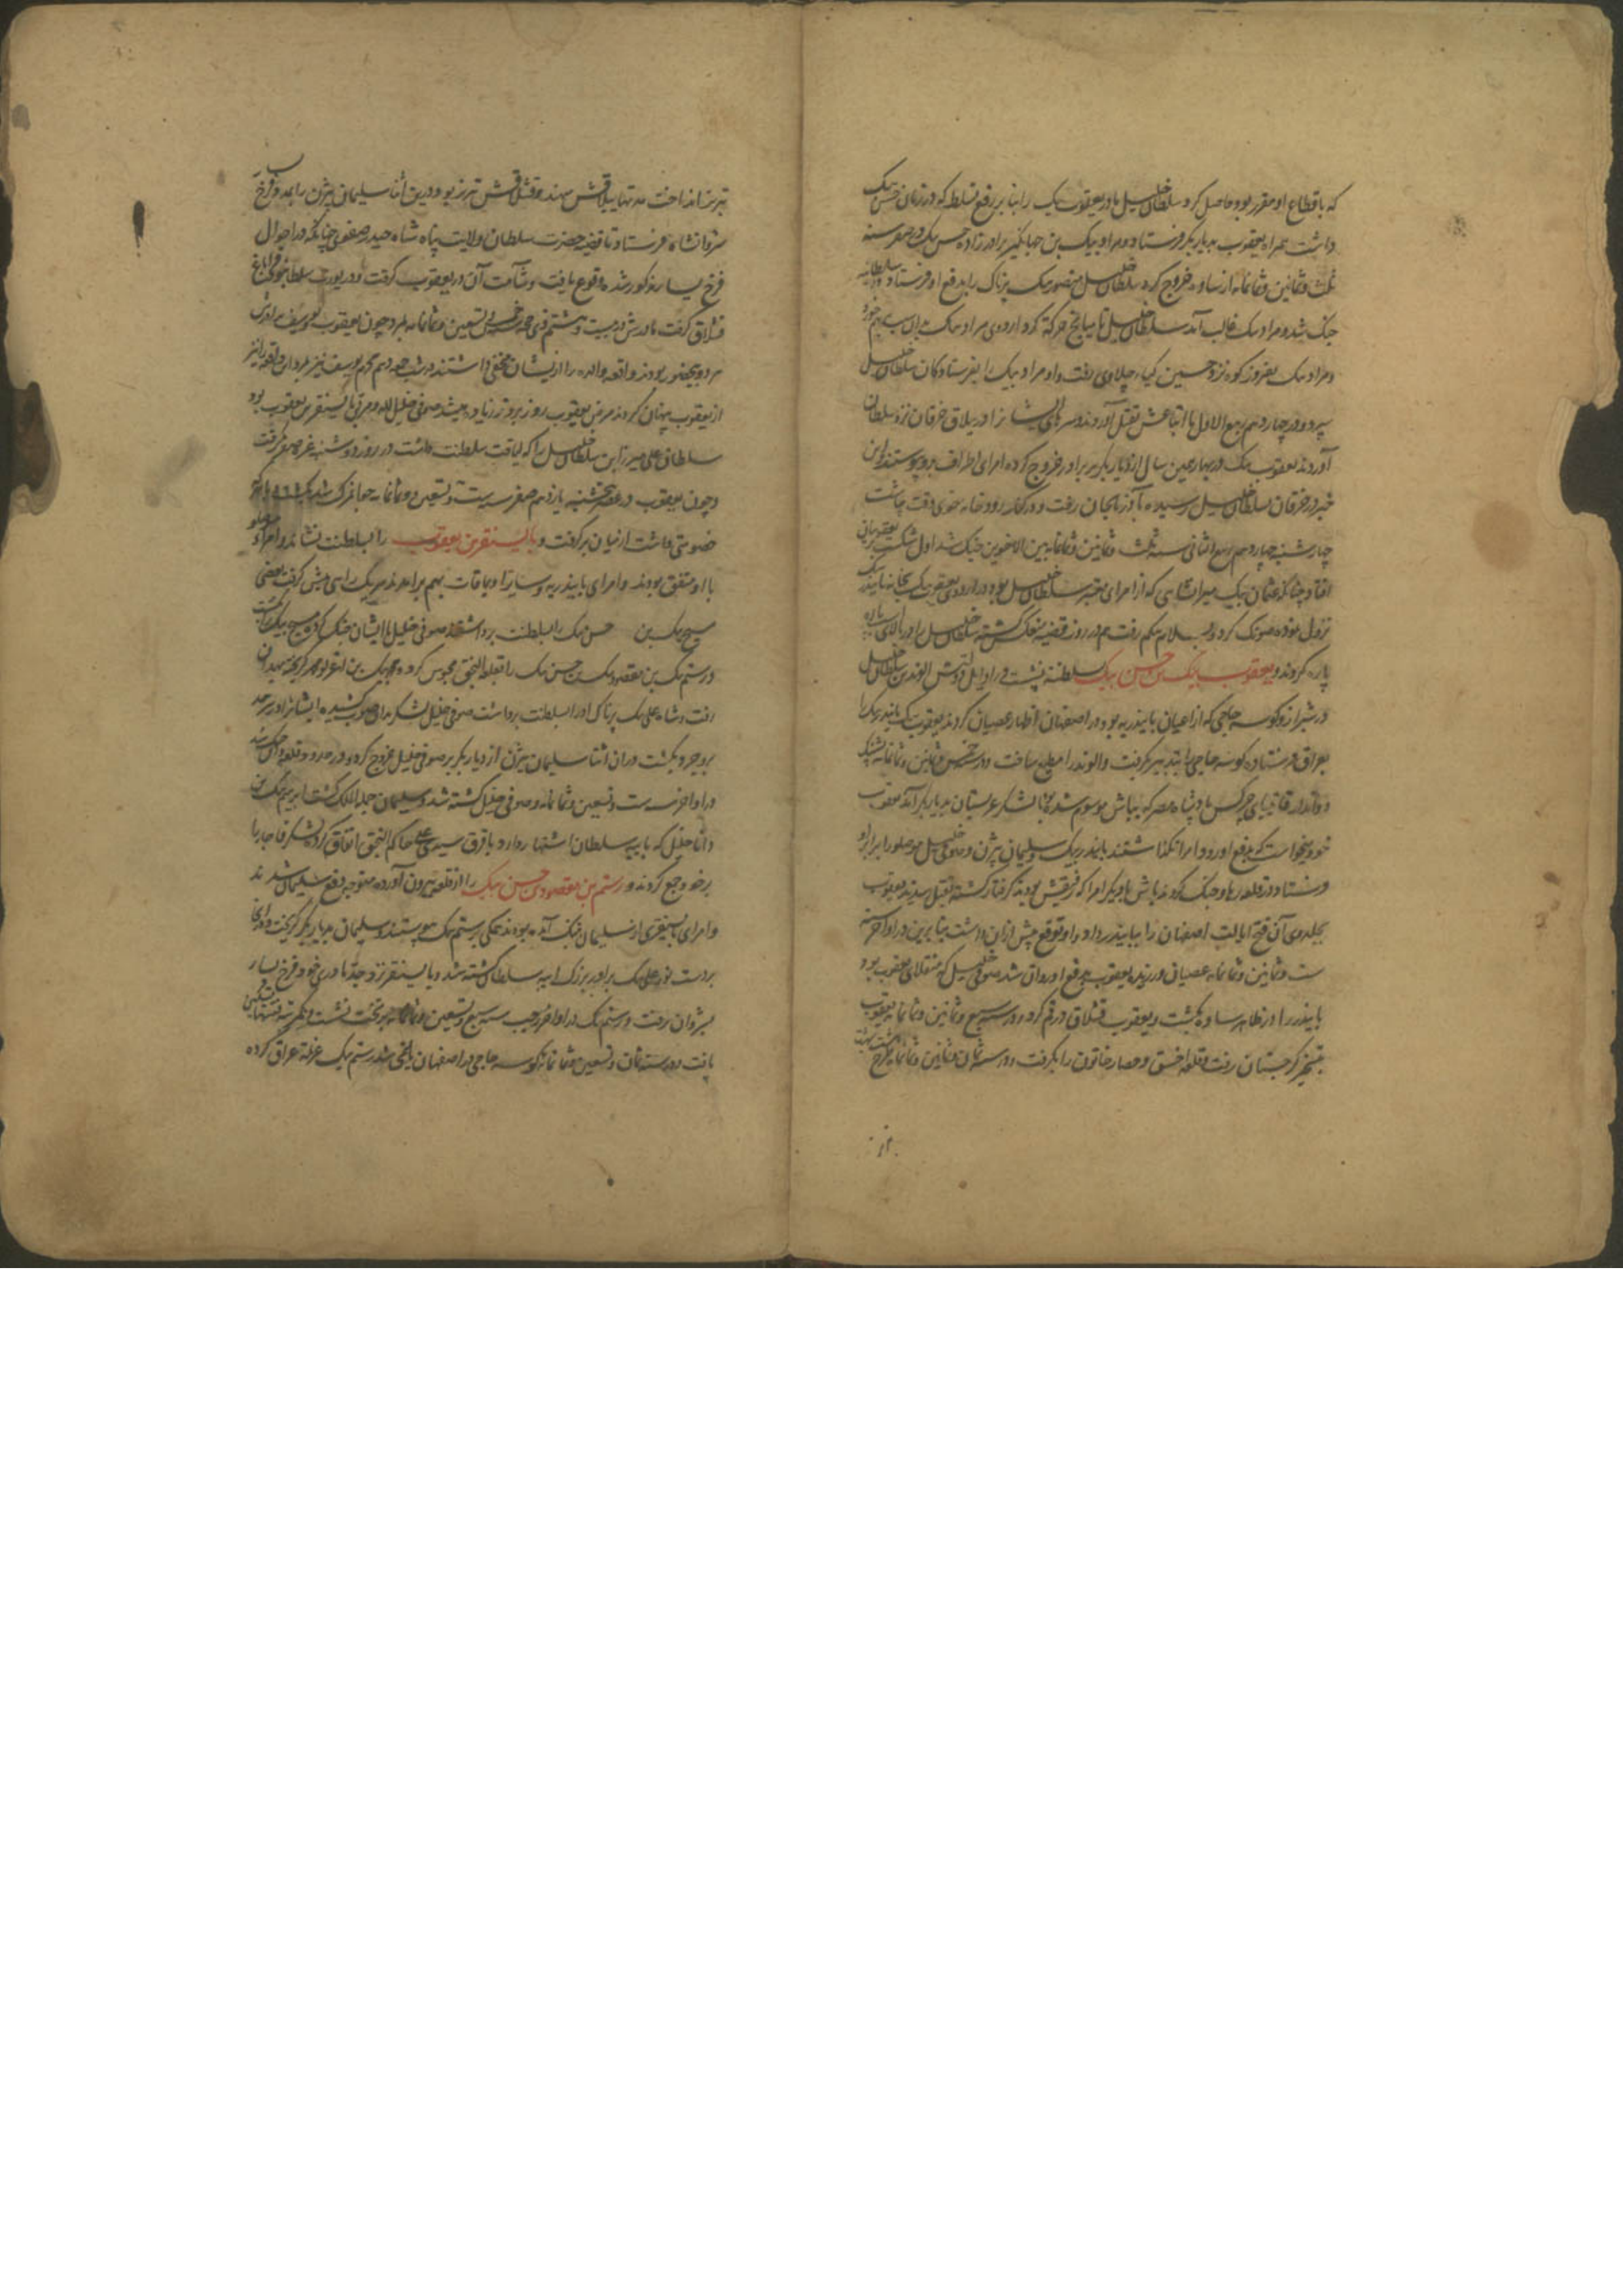 که باقطاع او مقرر بود حاصل کرد سلطان خلیل مادر یعقوب بیک را بنابر رفع تسلط که در زمان حسن بیک
داشت همراه یعقوب بدیار بکر فرستاد و مراد بیک بن جهانگیر برادرزاده حسن بیک در صفر سنه
ثلث و ثمانین و ثمانمایه از ساوه خروج کرد سلطان خلیل منصور بیک پرناک را بدفع او فرستاد
جنک شد و مراد بیک غالب آمد سلطان خلیل تا میانج حرکة کرد اردوی مراد بیک بدان سبب بهم خورد
و مراد بیک بفیروزکوه نزد حسین کیاء چلاوی رفت و او مراد بیک را بفرستادکان سلطان خلیل
سپرد و در چهاردهم ربیع الاول با اتباعش بقتل آوردند و سرهای ایشانرا در ییلاق خرقان نزد سلطان
آوردند یعقوب بیک در بهار همین سال از دیار بکر بر برادر خروج کرده امرای اطراف بدو پیوستند و این
خبر در خرقان بسلطان خلیل رسیده بآذربایجان رفت و در کنار رودخانه خوی وقت چاشت
چهارشنبه چهاردهم ربیع الثانی سنه ثلث و ثمانین و ثمانمایه بین الاخوین جنک شد اول شکست بر یعقوبیان
افتاد چنانکه عثمان بیک میرانشاهی که از امرای معتبر سلطان خلیل بود در اردوی یعقوب بیک بخانه بایندر بیک
نزول نموده کرد و سلار بیکم رفت هم در روز قضیه منعکس گشته سلطان خلیل را در بالای پاره
پاره کردند و یعقوب بیک بن حسن بیک بسلطنة بنشست و در اوایل دولتش الوند بن سلطان خلیل
در شیراز و کوسه حاجی که از اعیان بایندریه بود در اصفهان اظهار عصیان کردند یعقوب بیک بایندر بیک را
بعراق فرستاده کوسه حاجی را بتدبیر بگرفت و الوند را مطیع ساخت و در خمس و ثمانین و ثمانمایه
دواتدار قایتبای چرکس پادشاه مصر که بباش موسوم شده بود با لشکر عربستان بدیار بکر آمد یعقوب
خود میخواست که بدفع او رود امرا نکذاشتند بایندر بیک و سلیمان بیژن و صوفی خلیل موصلو را برابر او
فرستاد و در قلعه رها جنک کردند باش با دیکر امرا که رفیقش بودند کرفتار کشته بقتل رسیدند یعقوب
بجلدوی آن فتح ایالت اصفهان را ببایندر داد و او توقع بیش ازان داشت بنابرین در اواخر سنه
ست و ثمانین و ثمانمایه عصیان ورزیده یعقوب بدفع او روان شد صوفی خلیل که منقلای یعقوب بود
بایندر را در ظاهر ساوه بکشت و یعقوب قشلاق در قم کرد و در سنه سبع و ثمانین و ثمانمایه یعقوب
بتسخیر کرجستان رفت و قلعه اخسق و حصار خاتون را بکرفت و در سنه ثمان و ثمانین و ثمانمایه طرح
تبریز انداخت مدتها ییلاقش سهند و قشلاقش تبریز بود و درین اثنا سلیمان بیژن را بمدد فرخ یسار
شروانشاه فرستاد تا قضیه حضرت سلطان ولایت پناه شاه حیدر صفوی چنانکه در احوال
فرخ یسار مذکور شده وقوع یافت و شآمت آن در یعقوب کرفت و در یورت سلطانبود قراباغ
قشلاق کرفت مادرش در بیست و هشتم ذی حجه خمس و تسعین و ثمانمایه بمرد و چون یعقوب و یوسف برادرش
هر دو رنجور بودند واقعه والده را از ایشان مخفی داشتند در شب هم محرم یوسف نیز بمرد این واقعه را نیز
از یعقوب پنهان کردند مرض یعقوب روز بروز زیاده میشد صوفی خلیل الله و مربی بایسنقر بن یعقوب بود
سلطان علی میرزا بن سلطان خلیل را که لیاقت سلطنت داشت در روز دوشنبه غره صفر بگرفت
و چون یعقوب در عصر پنجشنبه یازدهم صفر سنه ست و تسعین و ثمانمایه
خصومتی داشت از میان برکرفت و بایسنقر بن یعقوب را بسلطنت نشاند و امراء موصلو
با او متفق بودند و امرای بایندریه و سایر اویماقات بهم برآمدند هر یک رای پیش گرفت بعضی
مسیح بیک بن حسن بیک را بسلطنت برداشتند صوفی خلیل با ایشان جنک کرده مسیح بیک را بکشت
و رستم بیک بن مقصود بیک بن حسن بیک را بقلعه النجق محبوس کرد و محمود بیک بن اغرلو محمد کریخته بهمدان
رفت و شاه علی بیک پرناک او را بسلطنت برداشت صوفی خلیل لشکر بدان صوب کشیده ایشانرا در سرحد
بروجرد بکشت دران اثنا سلیمان بیژن از دیار بکر بر صوفی خلیل خروج کرد و در حدود قلعه وان جنک شد
در اواخر سنه ست و تسعین و ثمانمایه و صوفی خلیل کشته شد و سلیمان جملة الملک گشت ابراهیم بیک بن
دانا خلیل که بایبه سلطان اشتهار دارد باتفاق سیدی علی حاکم النجق اتفاق کرده لشکر قاجار را
برخود جمع کردند و رستم بن مقصود بن حسن بیک را از قلعه بیرون آورده متوجه دفع سلیمان شدند
و امرای بایسنقری از سلیمان بتنک آمده بودند تمکی برستم بیک پیوستند و سلیمان بدیار بکر کریخت و آنجا
بردست نور علی بیک برادر بزرک ایبه سلطان کشته شد و بایسنقر نزد جد مادری خود فرخ یسار
بشروان رفت و رستم بیک در اواخر رجب سنه سبع و تسعین و ثمانمایه بر تخت نشست
یافت و در سنه ثمان و تسعین و ثمانمایه کوسه حاجی در اصفهان یاغی شد رستم بیک عزیمة عراق کرده